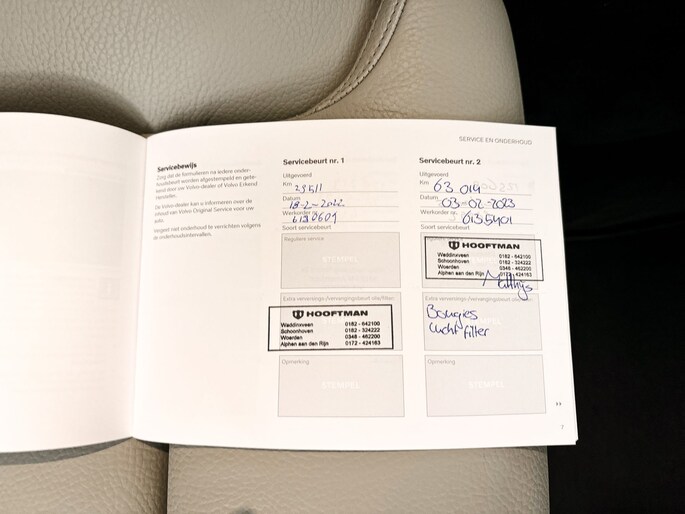 SERVICE EN ONDERHOUD
Servicebewijs
Zorg dat de formulieren na iedere onder-
houdsbeurt worden afgestempeld en gete-
kend door uw Volvo-dealer of Volvo Erkend
Hersteller.
De Volvo-dealer kan u informeren over de
inhoud van Volvo Original Service voor uw
auto.
Vergeet niet onderhoud te verrichten volgens
de onderhoudsintervallen.
Servicebeurt nr. 1
Uitgevoerd
Km 29511
Datum
18-2-2022
Werkorder nr.
Soort servicebeurt
Reguliere service
STEMPEL
Extra verversings-/vervangingsbeurt olie/filter
HOOFTMAN
Waddinxveen 0182 - 642100
Schoonhoven 0182 - 324222
Woerden 0348 - 462200
Alphen aan den Rijn 0172 - 424163
Opmerking
STEMPEL
Servicebeurt nr. 2
Uitgevoerd
Km 63 019
Datum
03-02-2023
Werkorder nr. 6135401
Soort servicebeurt
HOOFTMAN
Waddinxveen 0182 - 642100
Schoonhoven 0182 - 324222
Woerden 0348 - 462200
Alphen aan den Rijn 0172 - 424163
Matthijs
Extra verversings-/vervangingsbeurt olie/filter
Bougies
Luchtfilter
Opmerking
STEMPEL
7